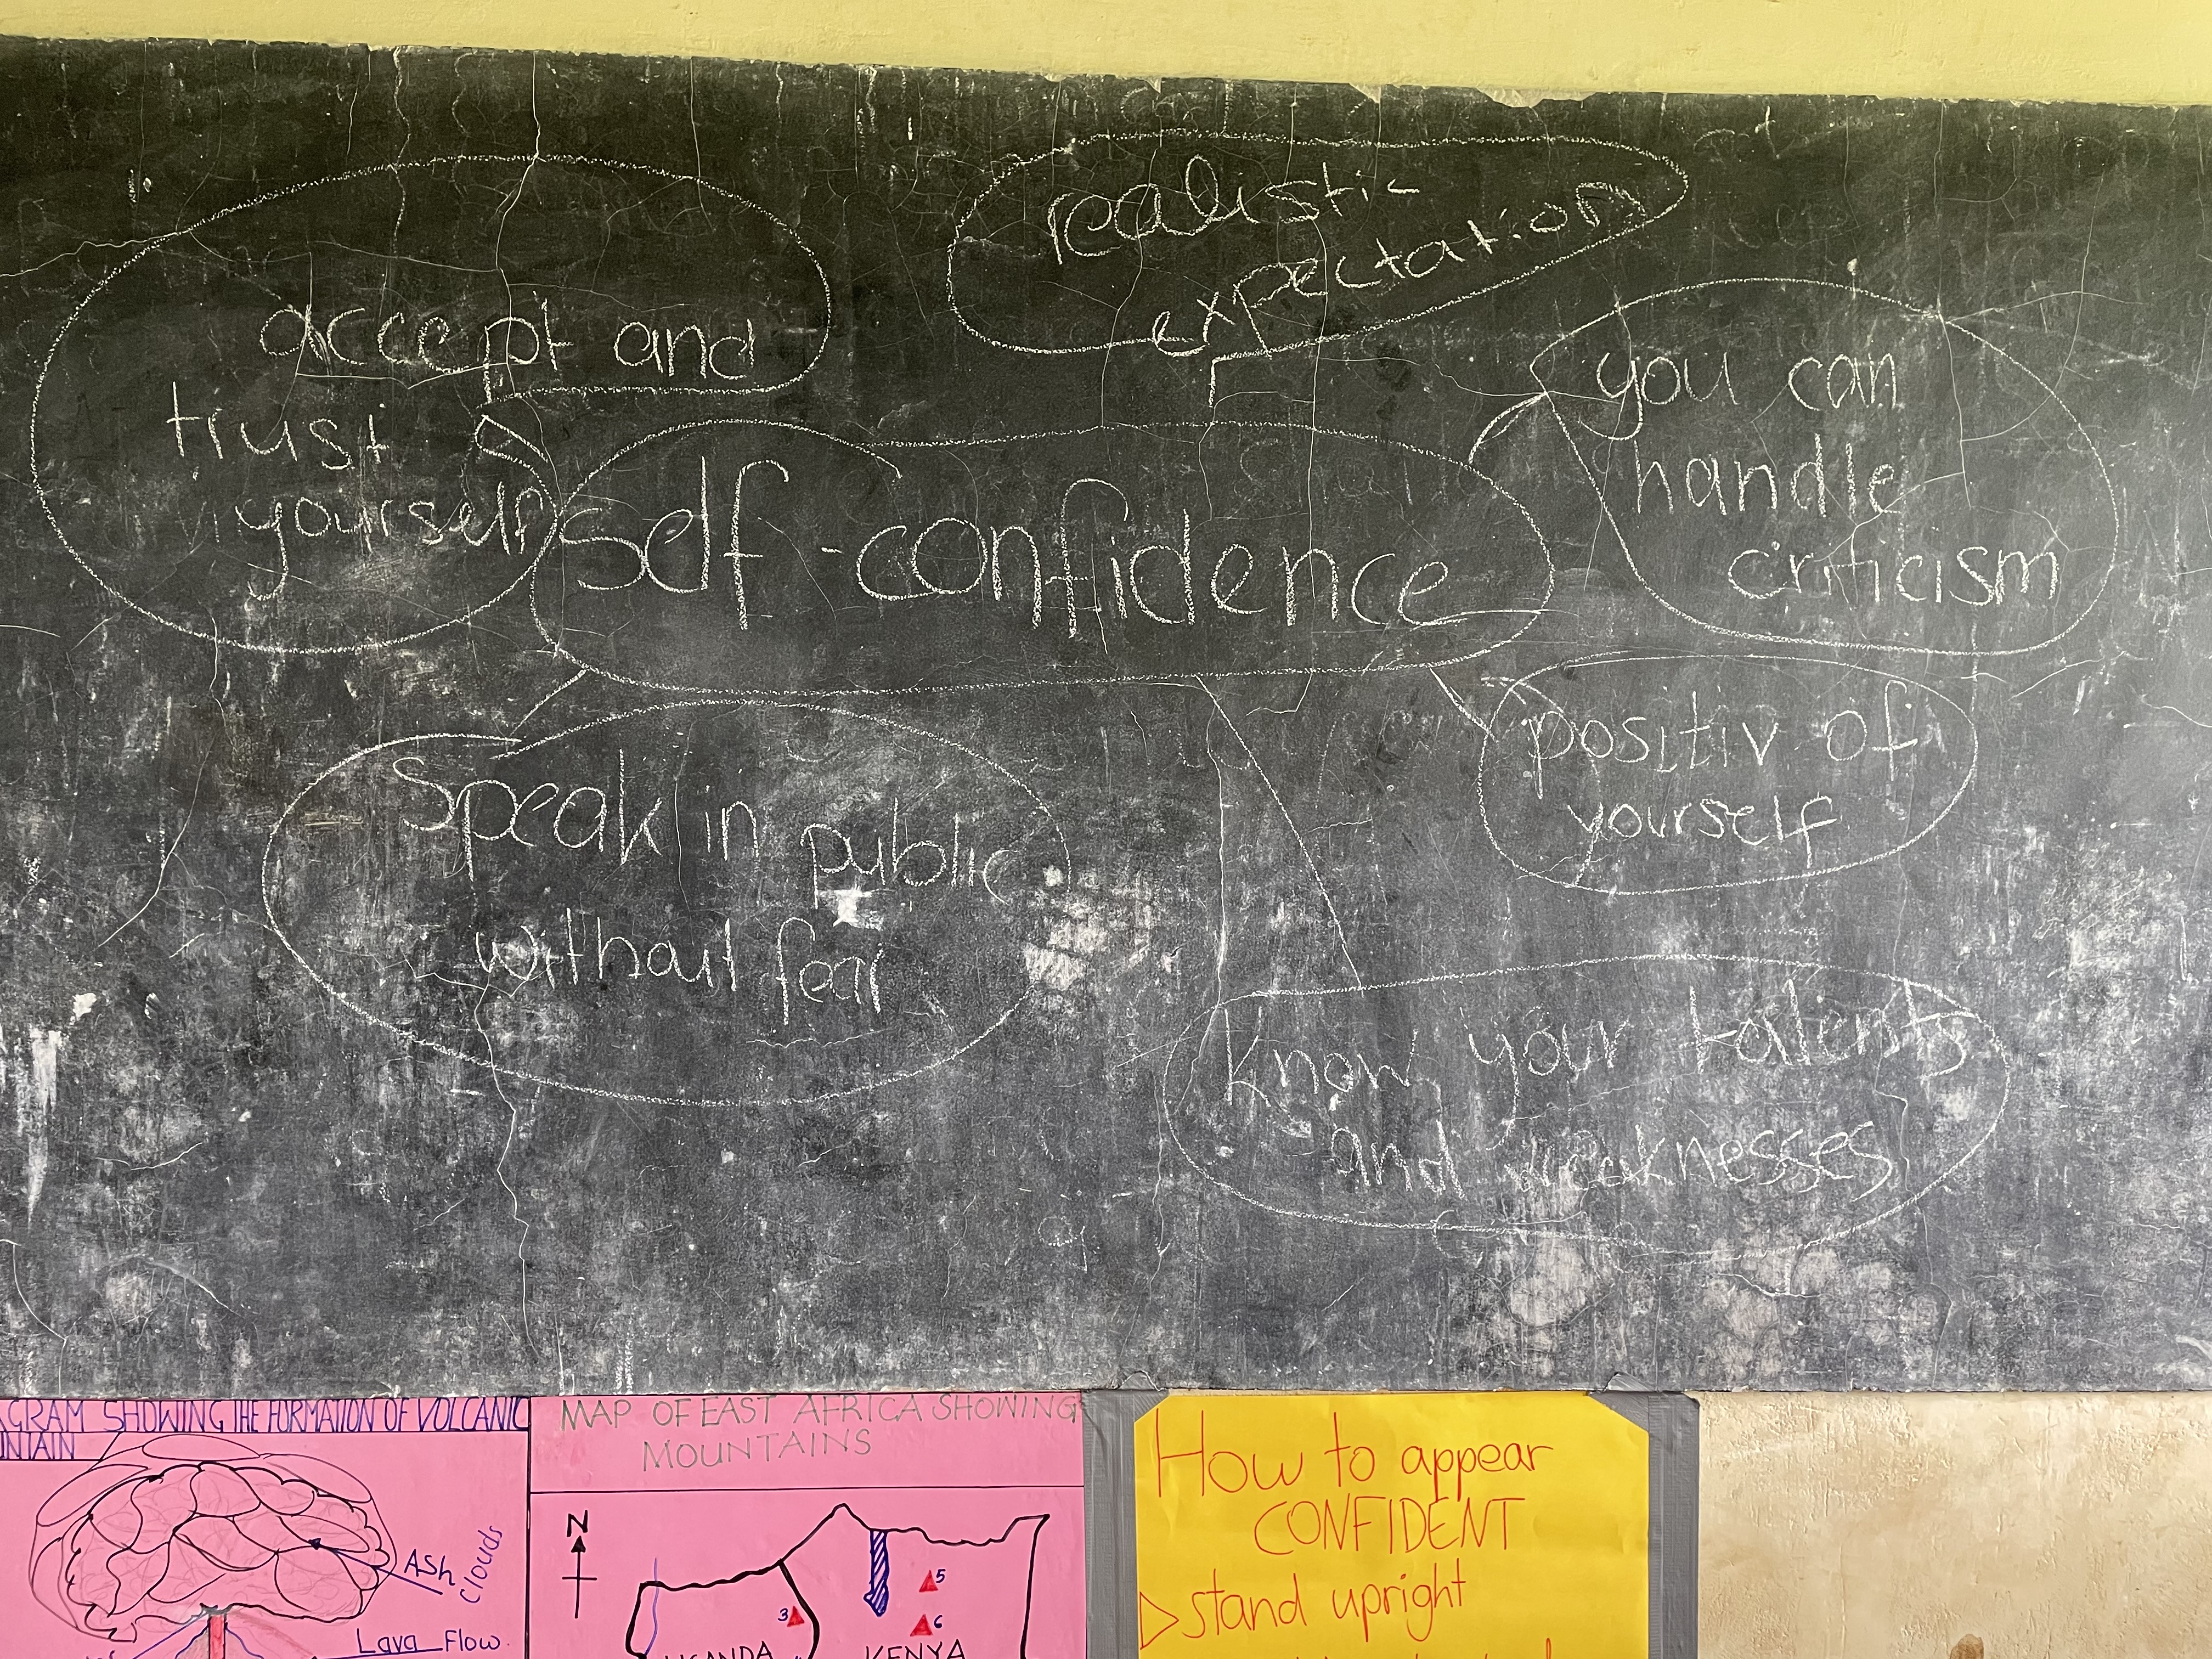 realistic
expectation
accept and
trust
yourself
you can
handle
criticism
self-confidence
positiv of
yourself
Speak in public
without fear
know your talents
and weaknesses
AGRAM SHOWING THE FORMATION OF VOLCANIC
NTAIN
ASh
clouds
Lava Flow.
MAP OF EAST AFRICA SHOWING
MOUNTAINS
N
5
3
6
UGANDA KENYA
How to appear
CONFIDENT
▷ stand upright